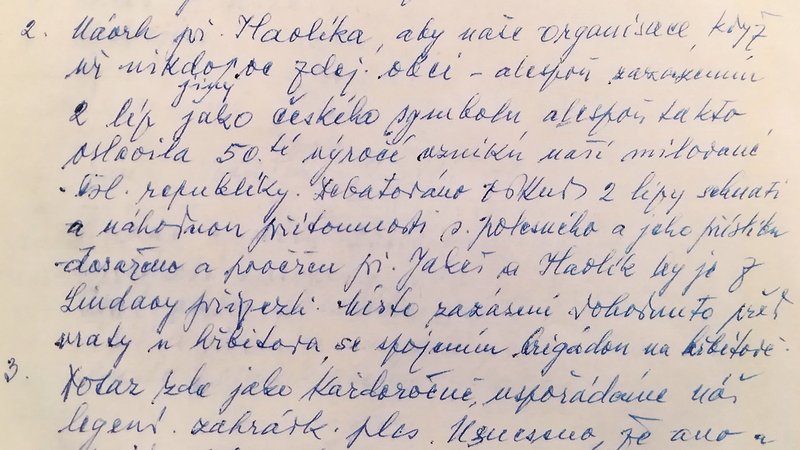 2. Návrh př. Havlíka, aby naše organisace, když
už nikdo pro zdej. obci - alespoň zasazením
2 lip jako českého symbolu alespoň takto
oslavila 50.té výročí vzniku naší milované
čsl. republiky. Debatováno odkud 2 lípy sehnati
a náhodnou přítomností s. polesného a jeho příslibu
dosaženo a pověřen př. Jakeš a Havlík by je z
Lindavy přivezli. Místo zasázení dohodnuto před
vraty u hřbitova se spojením brigádou na hřbitově.
3. Dotaz zda jako každoročně, uspořádáme náš
legení. zahrádk. ples. Usneseno, že ano a